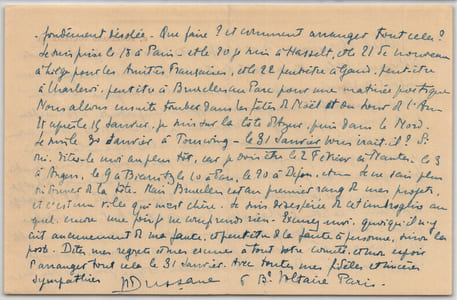 fondément désolée. Que faire ? et comment arranger tout cela ?
Je suis prise le 18 à Paris - et le 20 je suis à Hasselt, et le 21 de nouveau
à Liège pour les Amitiés Françaises, et le 22 peut-être à Gand, peut-être
à Charleroi, peut-être à Bruxelles au Parc pour une matinée poétique
Nous allons ensuite tomber dans les fêtes de Noël et du Jour de l'An
Et après le 15 Janvier, je suis sur la Côte d'Azur, puis dans le Nord.
Je suis le 30 Janvier à Tourcoing - le 31 Janvier vous irait-il ? Si
oui, dites-le moi au plus tôt, car je dois être le 2 Février à Nantes, le 3
à Angers, le 9 à Beauvais, le 10 à Pau, le 20 à Dijon, et je ne sais plus
où donner de la tête. Mais Bruxelles est au premier rang de mes projets,
et c'est une ville qui m'est chère. Je suis désespérée de cet imbroglio au
quel, encore une fois, je ne comprends rien. Excusez-moi, quoiqu'il n'y
ait aucunement de ma faute, et peut-être de la faute à personne, sinon la
poste. Dites mes regrets et mes excuses à tout votre comité, et mon espoir
d'arranger tout cela le 31 Janvier. Avec toutes mes fidèles et sincères
sympathies Dussane 6 Bd Voltaire Paris.